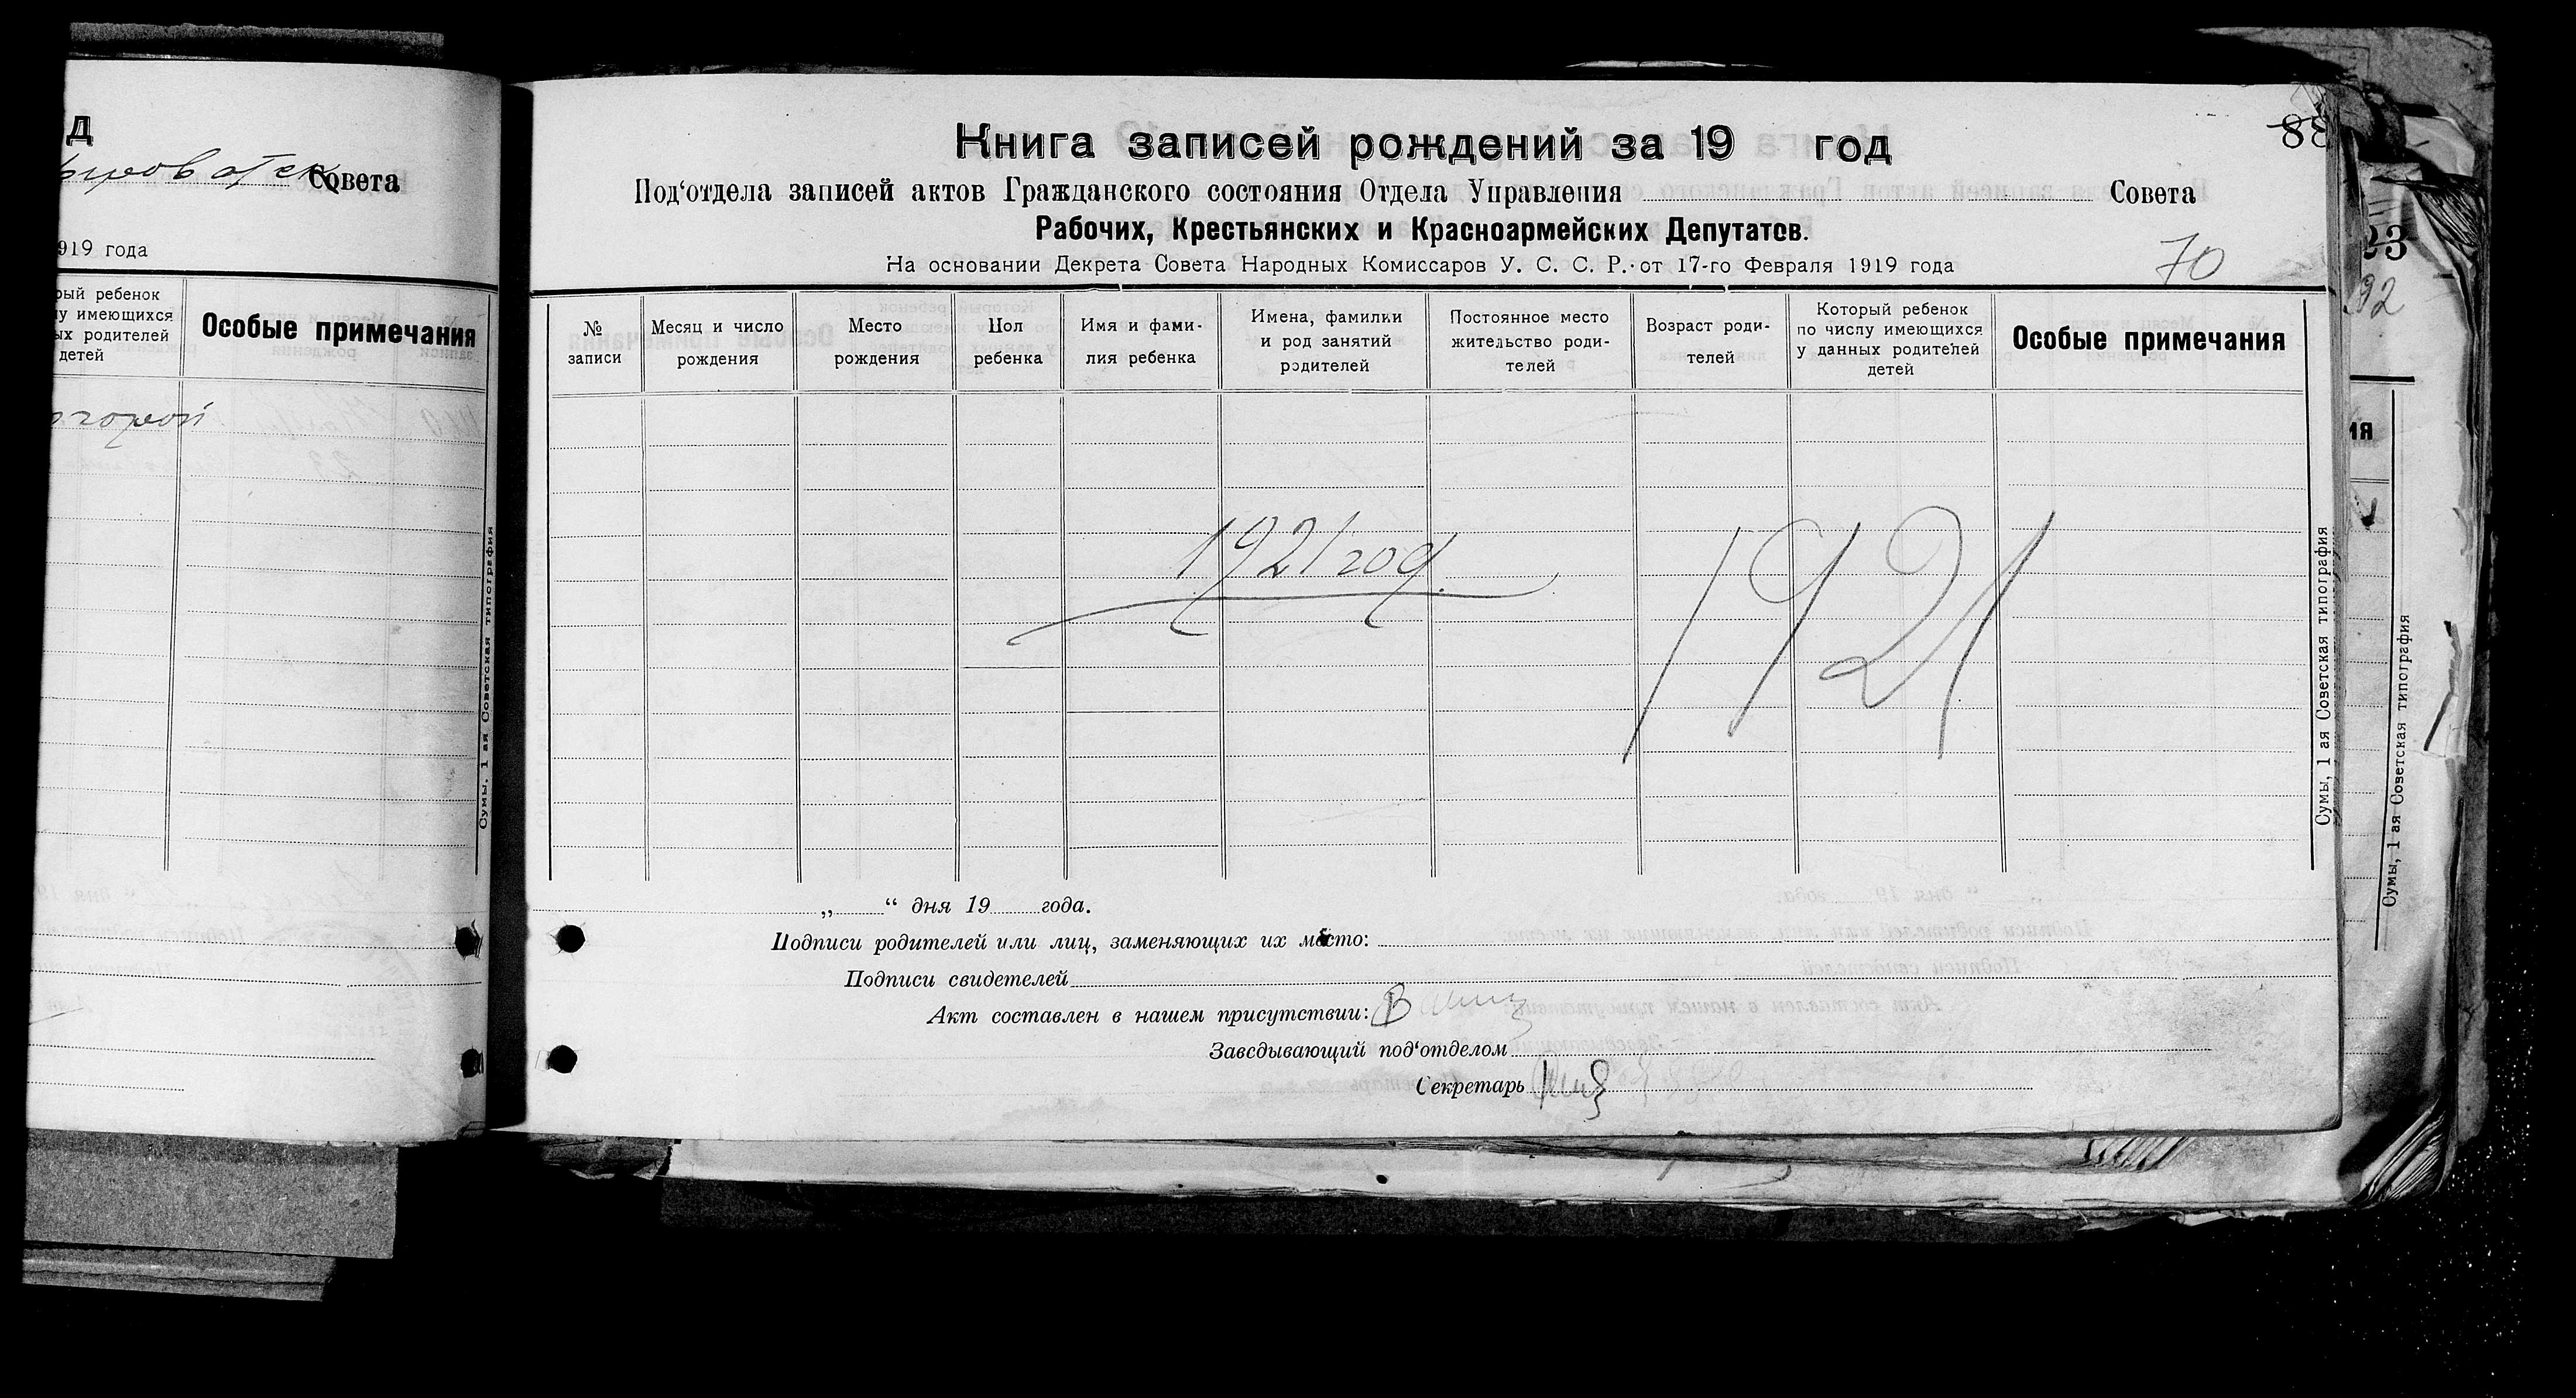 д
Совета
919 года
рый ребенок
у имеющихся
ых родителей
детей
Особые примечания
Сумы, 1 ая Советская типография
88
Книга записей рождений за 19 год
Под‘отдела записей актов Гражданского состояния Отдела Управления Совета
Рабочих, Крестьянских и Красноармейских Депутатов.
На основании Декрета Совета Народных Комиссаров У. С. С. Р. от 17-го Февраля 1919 года
70
№
записи
Месяц и число
рождения
Место
рождения
Пол
ребенка
Имя и фами-
лия ребенка
Имена, фамилии
и род занятий
родителей
Постоянное место
жительство роди-
телей
Возраст роди-
телей
Который ребенок
по числу имеющихся
у данных родителей
детей
Особые примечания
1921 год
1921
Сумы, 1 ая Советская типография
„ “ дня 19 года.
Подписи родителей или лиц, заменяющих их место:
Подписи свидетелей
Акт составлен в нашем присутствии:
Заведывающий под‘отделом
Секретарь
23
92
ия
Сумы, 1 ая Советская типография